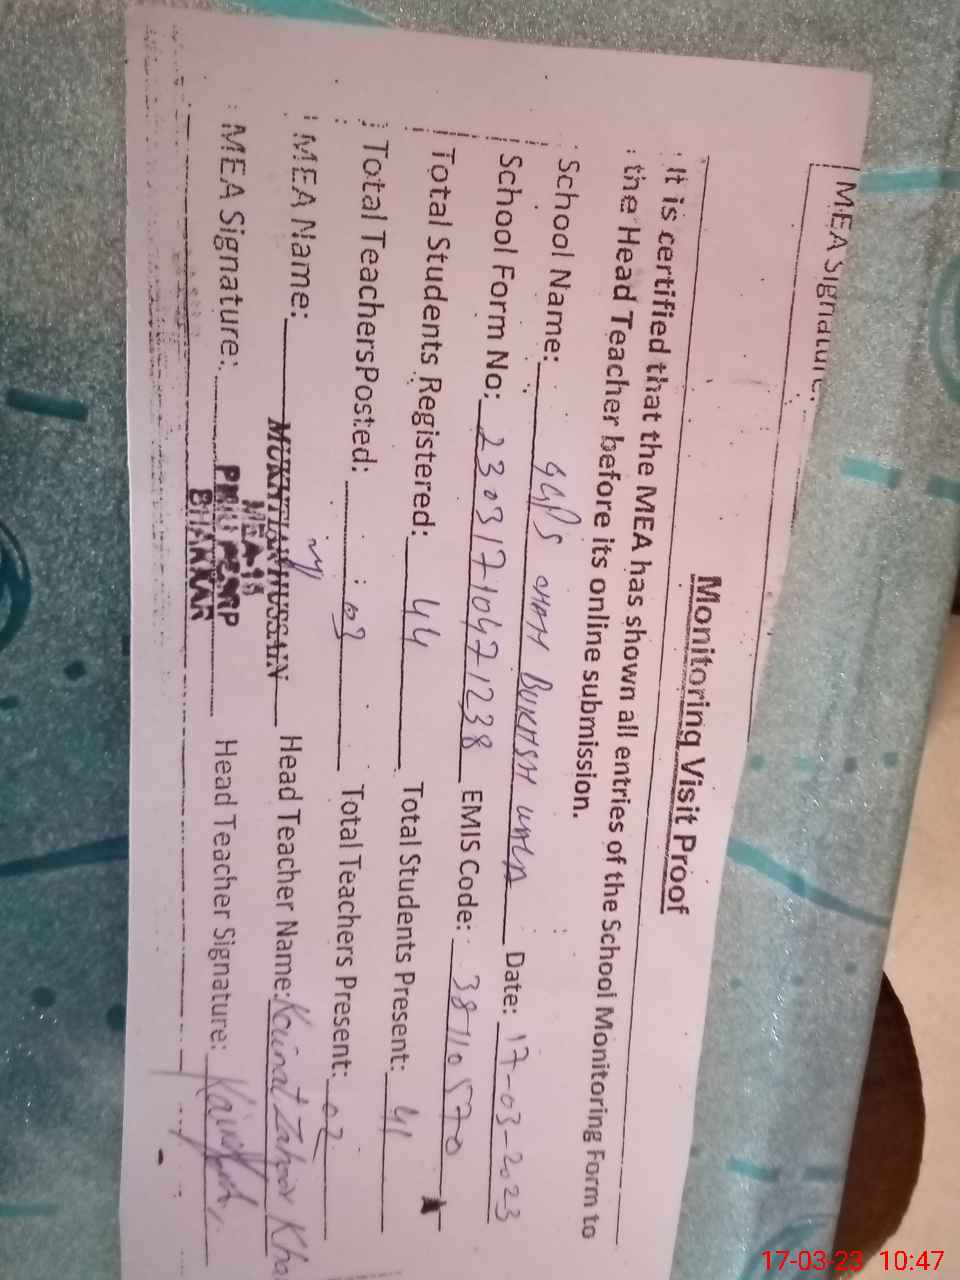 MEA Signature:
Monitoring Visit Proof
It is certified that the MEA has shown all entries of the School Monitoring Form to
the Head Teacher before its online submission.
School Name: GGPS CHAH BUKHSH WALA Date: 17-03-2023
School Form No: 23031710471238 EMIS Code: 38110570
Total Students Registered: 44 Total Students Present: 41
Total TeachersPosted: 03 Total Teachers Present: 02
MEA Name: HUSSAIN Head Teacher Name: Kainat Zahoor Kha
MEA-18
MEA Signature: PMIU PESRP Head Teacher Signature:
BHAKKAR
17-03-23 10:47